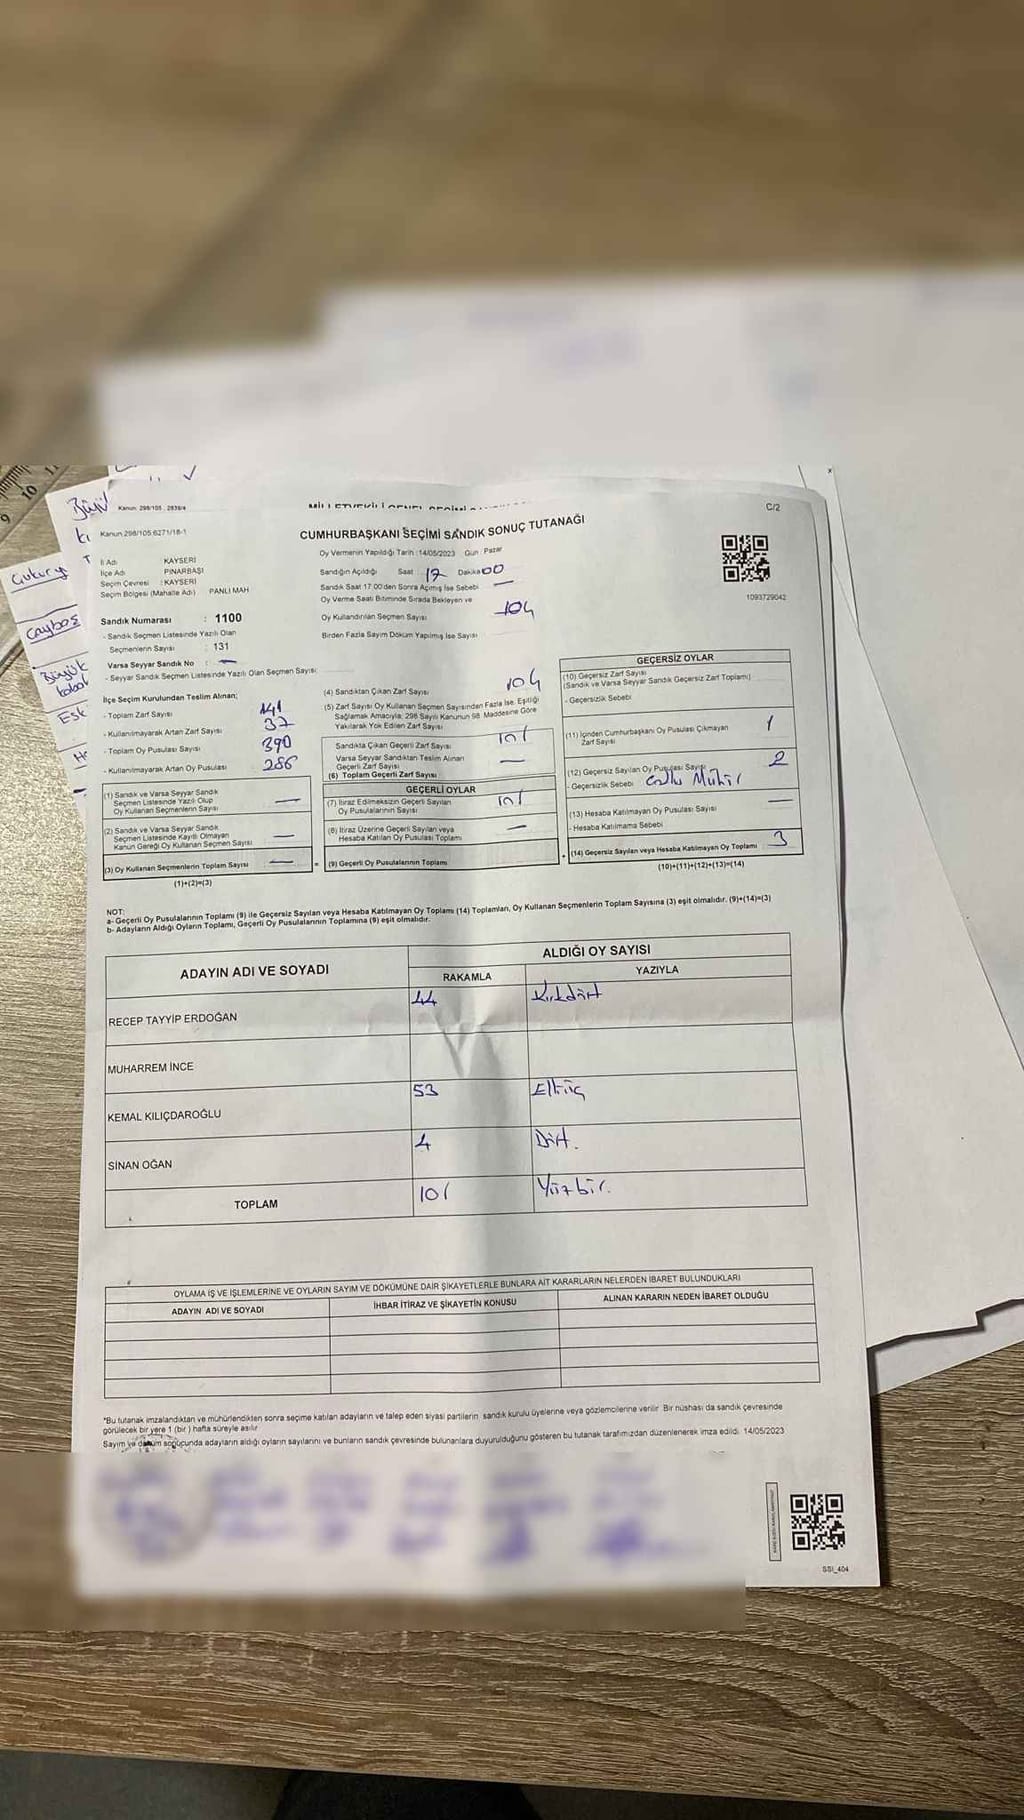 Büyü
Kanun: 298/105 , 2839/4
C/2
Kanun 298/105 6271/18-1
CUMHURBAŞKANI SEÇİMİ SANDIK SONUÇ TUTANAĞI
İl Adı KAYSERİ
İlçe Adı PINARBAŞI
Seçim Çevresi : KAYSERİ
Seçim Bölgesi (Mahalle Adı) PANLI MAH
Oy Vermenin Yapıldığı Tarih :14/05/2023 Gün : Pazar
Sandığın Açıldığı Saat : 17 Dakika 00
Sandık Saat 17:00'den Sonra Açılmış İse Sebebi —
Oy Verme Saati Bitiminde Sırada Bekleyen ve
Oy Kullandırılan Seçmen Sayısı 104
Birden Fazla Sayım Döküm Yapılmış İse Sayısı
1093729042
Sandık Numarası : 1100
- Sandık Seçmen Listesinde Yazılı Olan
Seçmenlerin Sayısı : 131
Varsa Seyyar Sandık No : —
- Seyyar Sandık Seçmen Listesinde Yazılı Olan Seçmen Sayısı:
İlçe Seçim Kurulundan Teslim Alınan;
- Toplam Zarf Sayısı 141
- Kullanılmayarak Artan Zarf Sayısı 37
- Toplam Oy Pusulası Sayısı 390
- Kullanılmayarak Artan Oy Pusulası 286
(1) Sandık ve Varsa Seyyar Sandık
Seçmen Listesinde Yazılı Olup
Oy Kullanan Seçmenlerin Sayısı —
(2) Sandık ve Varsa Seyyar Sandık
Seçmen Listesinde Kayıtlı Olmayan
Kanun Gereği Oy Kullanan Seçmen Sayısı —
(3) Oy Kullanan Seçmenlerin Toplam Sayısı —
(1)+(2)=(3)
(4) Sandıktan Çıkan Zarf Sayısı 104
(5) Zarf Sayısı Oy Kullanan Seçmen Sayısından Fazla İse, Eşitliği
Sağlamak Amacıyla; 298 Sayılı Kanunun 98. Maddesine Göre
Yakılarak Yok Edilen Zarf Sayısı
Sandıkta Çıkan Geçerli Zarf Sayısı 101
Varsa Seyyar Sandıktan Teslim Alınan
Geçerli Zarf Sayısı —
(6) Toplam Geçerli Zarf Sayısı
GEÇERLİ OYLAR
(7) İtiraz Edilmeksizin Geçerli Sayılan
Oy Pusulalarının Sayısı 101
(8) İtiraz Üzerine Geçerli Sayılan veya
Hesaba Katılan Oy Pusulası Toplamı —
(9) Geçerli Oy Pusulalarının Toplamı
GEÇERSİZ OYLAR
(10) Geçersiz Zarf Sayısı
(Sandık ve Varsa Seyyar Sandık Geçersiz Zarf Toplamı)
- Geçersizlik Sebebi
(11) İçinden Cumhurbaşkanı Oy Pusulası Çıkmayan
Zarf Sayısı 1
(12) Geçersiz Sayılan Oy Pusulası Sayısı 2
- Geçersizlik Sebebi Çoklu Mühür
(13) Hesaba Katılmayan Oy Pusulası Sayısı —
- Hesaba Katılmama Sebebi
(14) Geçersiz Sayılan veya Hesaba Katılmayan Oy Toplamı 3
(10)+(11)+(12)+(13)=(14)
NOT:
a- Geçerli Oy Pusulalarının Toplamı (9) ile Geçersiz Sayılan veya Hesaba Katılmayan Oy Toplamı (14) Toplamları, Oy Kullanan Seçmenlerin Toplam Sayısına (3) eşit olmalıdır. (9)+(14)=(3)
b- Adayların Aldığı Oyların Toplamı, Geçerli Oy Pusulalarının Toplamına (9) eşit olmalıdır.
ADAYIN ADI VE SOYADI ALDIĞI OY SAYISI
RAKAMLA YAZIYLA
RECEP TAYYİP ERDOĞAN 44 Kırkdört
MUHARREM İNCE
KEMAL KILIÇDAROĞLU 53 Elliüç
SİNAN OĞAN 4 Dört.
TOPLAM 101 Yüzbir.
OYLAMA İŞ VE İŞLEMLERİNE VE OYLARIN SAYIM VE DÖKÜMÜNE DAİR ŞİKAYETLERLE BUNLARA AİT KARARLARIN NELERDEN İBARET BULUNDUKLARI
ADAYIN ADI VE SOYADI İHBAR İTİRAZ VE ŞİKAYETİN KONUSU ALINAN KARARIN NEDEN İBARET OLDUĞU
*Bu tutanak imzalandıktan ve mühürlendikten sonra seçime katılan adayların ve talep eden siyasi partilerin sandık kurulu üyelerine veya gözlemcilerine verilir. Bir nüshası da sandık çevresinde
görülecek bir yere 1 (bir ) hafta süreyle asılır
Sayım ve döküm sonucunda adayların aldığı oyların sayılarını ve bunların sandık çevresinde bulunanlara duyurulduğunu gösteren bu tutanak tarafımızdan düzenlenerek imza edildi. 14/05/2023
SSI_404